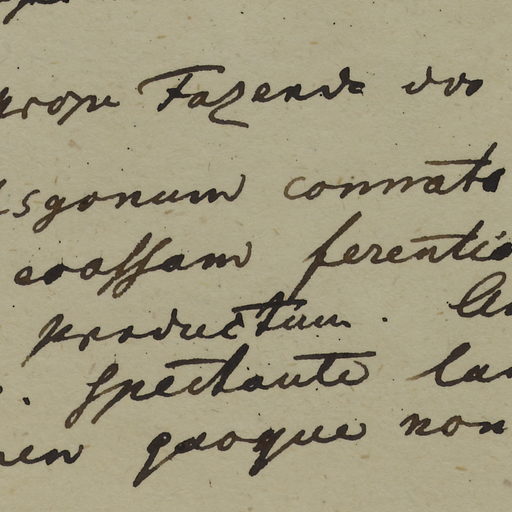 prope Fazenda dos
isgonum connato
crassam ferentia
productum. An
. Spectante Lan
men quoque non